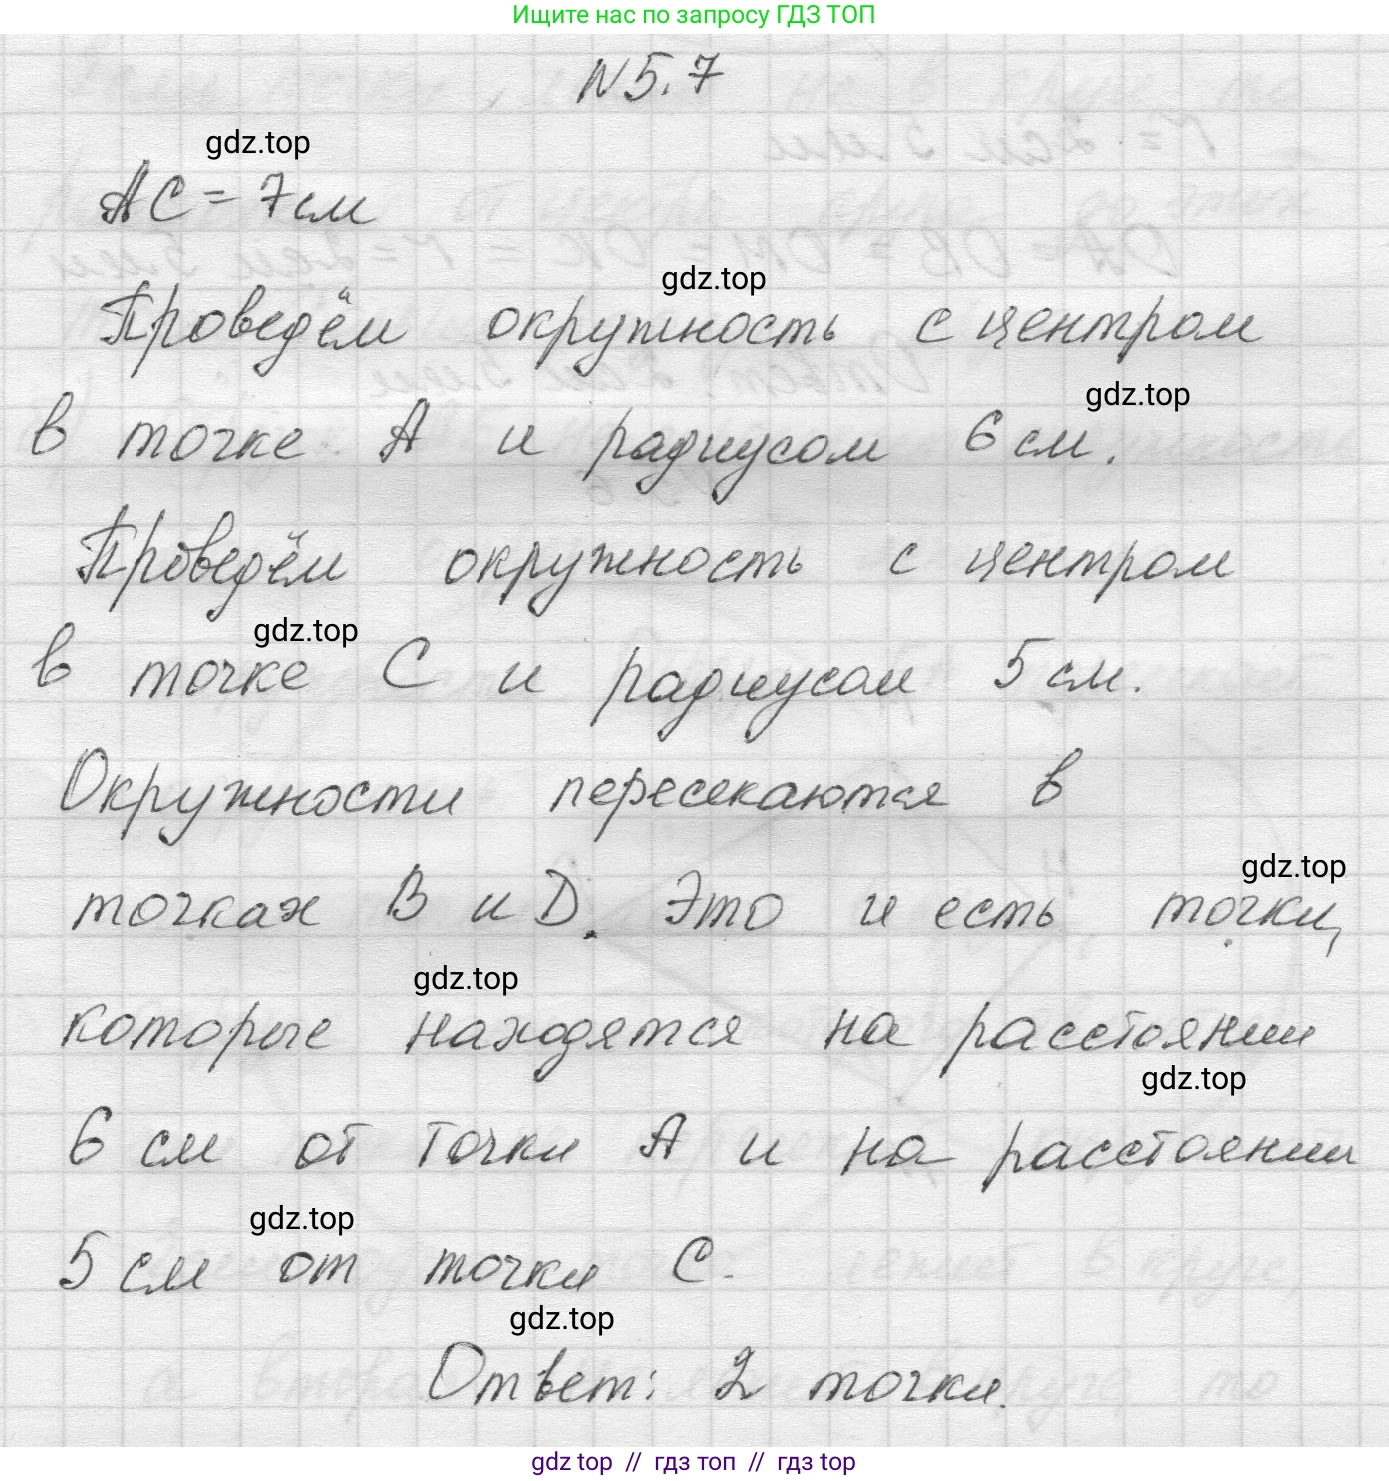 Ищите нас по запросу ГДЗ ТОП
N 5.7
gdz.top
AC = 7 см
gdz.top
Проведём окружность с центром
gdz.top
в точке А и радиусом 6 см.
Проведём окружность с центром
gdz.top
в точке С и радиусом 5 см.
Окружности пересекаются в
gdz.top
точках В и D. Это и есть точки,
gdz.top
которые находятся на расстоянии
gdz.top
6 см от точки А и на расстоянии
gdz.top
5 см от точки С.
gdz.top
Ответ: 2 точки.
gdz.top // гдз топ // гдз top